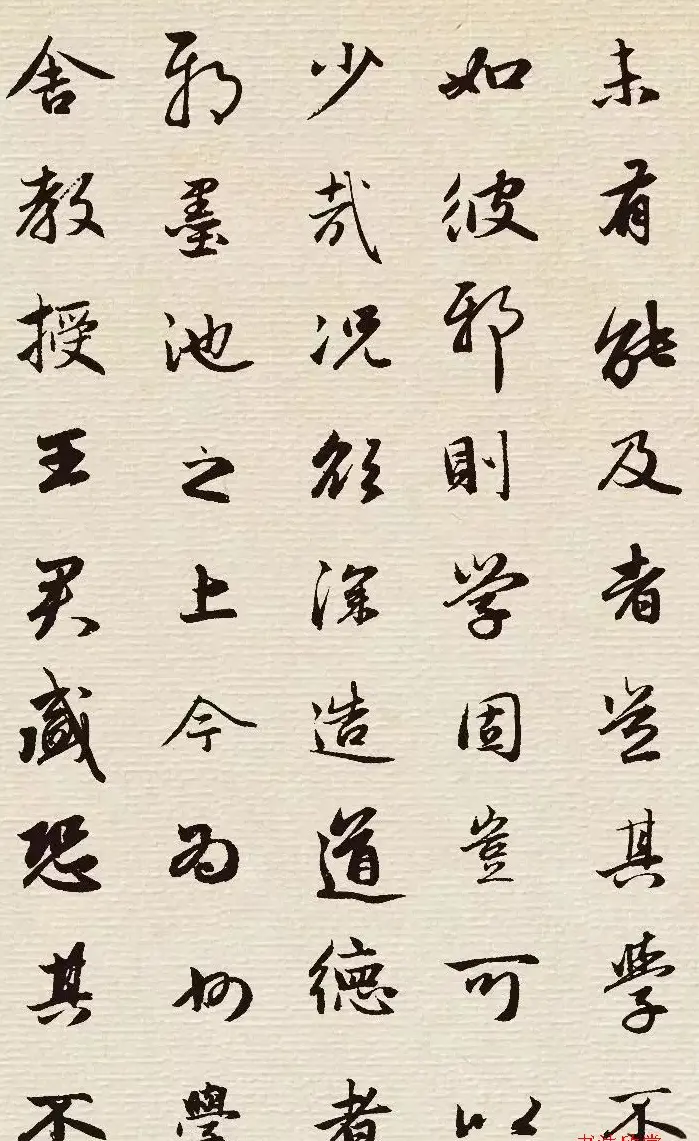 未有能及者豈其學不
如彼邪則学固豈可以
少哉况欲深造道德者
邪墨池之上今為州學
舍教授王君盛恐其不